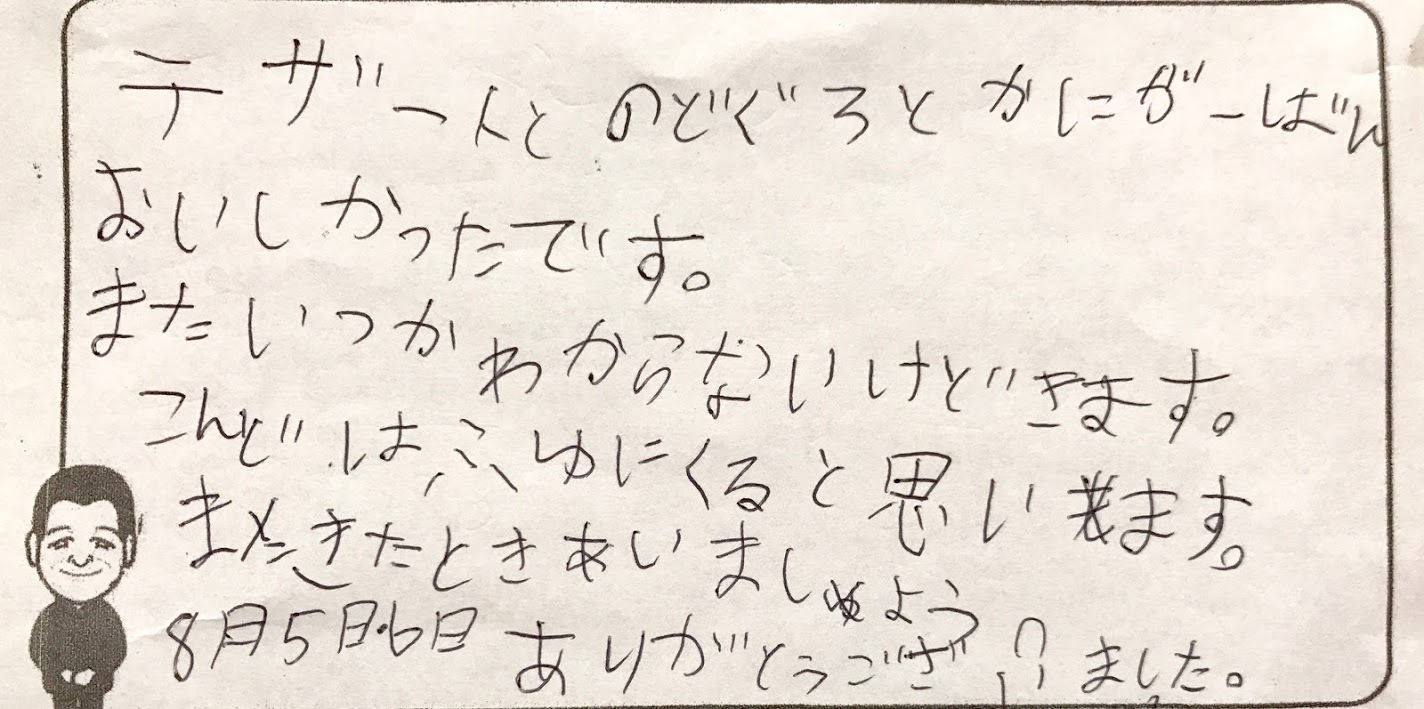 デザートとのどぐろとかにがーばん
おいしかったです。
またいつかわからないけどきます。
こんどはふゆにくると思います。
またきたときあいましょう
8月5日・6日 ありがとうございました。